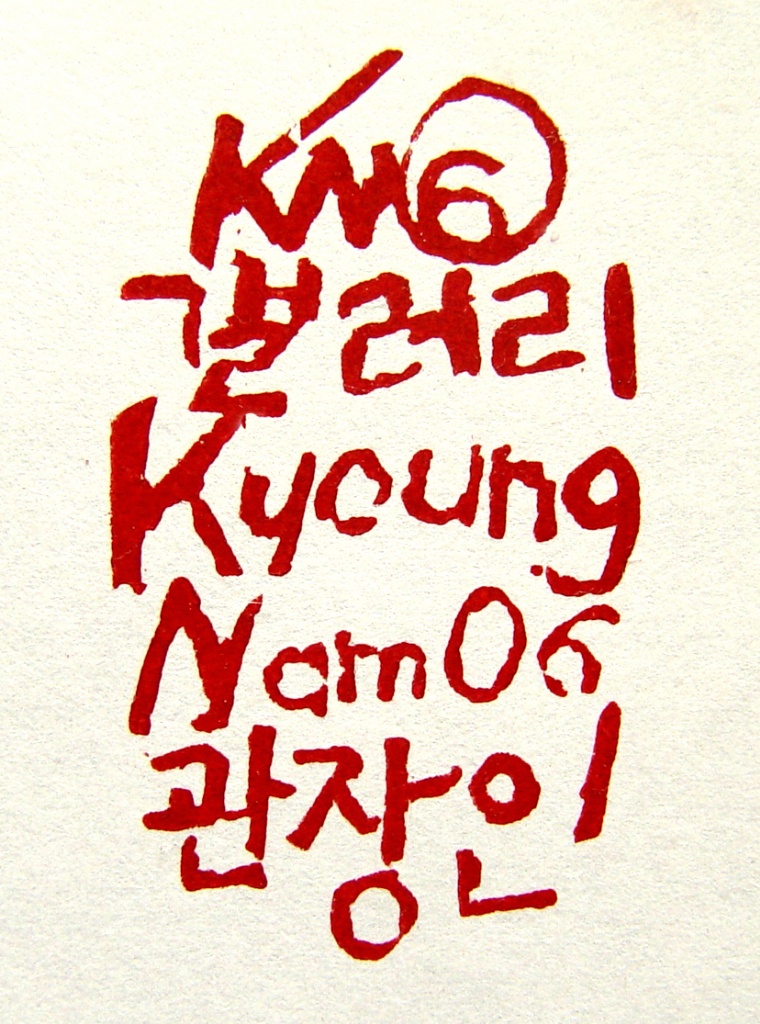 KM⑥
갤러리
Kyoung
Nam06
관장인